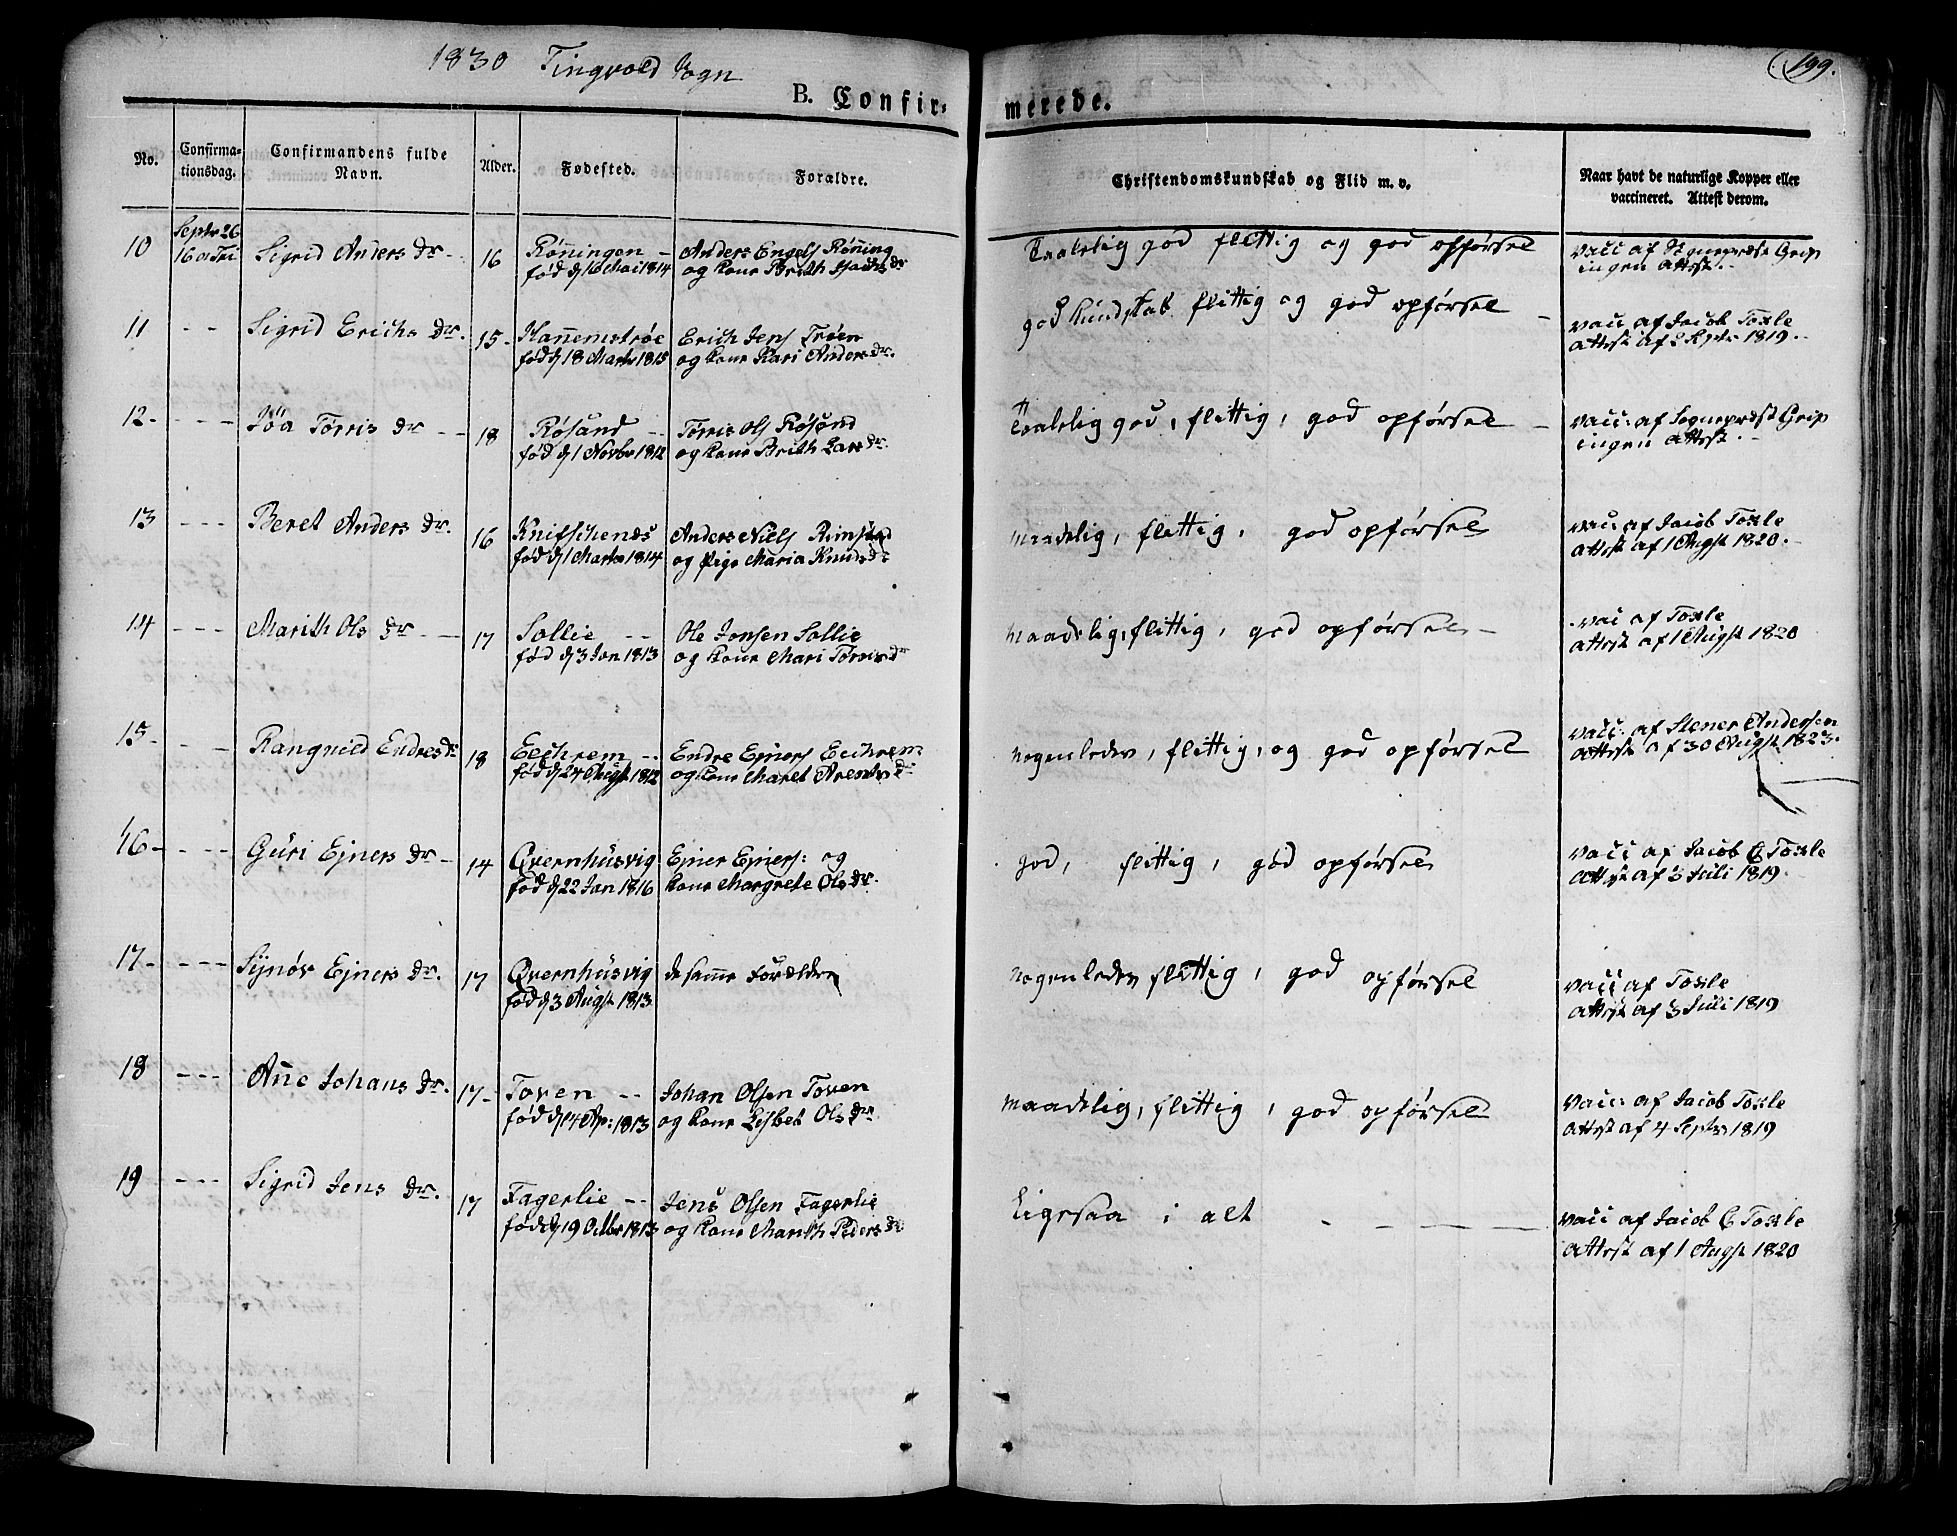 1830 Tingvold Sogn
199.
B. Confirmerede.
No. Confirmationsdag. Confirmandens fulde Navn. Alder. Fødested. Foraldre. Christendomskundskab og Flid m. v. Naar havt de naturlige Kopper eller vaccineret. Attest derom.
10 Septr 26 16 a Tri Sigrid Anders Dr. 16 Rønningen - Anders Engels Rønning Taalelig god flittig og god opførsel vacc af Sognepræst Grip
fød d 16 Mai 1814 og Kone Brith Isachs dr ingen attest.
11 - - Sigrid Erichs Dr. 15 - Hannemstrøe Erich Jens Trøen god kundskab flittig og god opførsel - vacc af Jacob Toxle
fød d 18 Marts 1815 og Kone Kari Anders dr. attest af 2 Septr 1819.
12 - - - - Torris Dr - - 18 Røsand - - Torris Ols Røsand Taalelig god, flittig, god opførsel - vacc: af Sognepræst Grip
fød d 1 Novbr 1812 og Kone Brith Lars dr. ingen attest.
13 - - - Beret Anders Dr. 16 Knifschenæs Anders Niels Rimstad maadelig, flittig, god opførsel vacc af Jacob Toxle
fød d 1 Marts 1814 og Pige Maria Knuds dr attest af 1 Augst 1820.
14 - - - Marith Ols Dr - - 17 Sollie - - Ole Jonsen Sollie maadelig, flittig, god opførsel - vacc af Toxle
fød d 3 Jan 1813 og Kone Mari Torris dr attest af 1 Augst 1820
15 - - - Rangnild Endres dr 18 Eechrem - - Endre Ejners Eechrem nogenleder, flittig, og god opførsel vacc. af Stener Andersen
fød d 24 Augst 1812 og Kone Maret Arents dr attest af 30 Augst 1823.
16 - - - - Guri Ejners Dr - 14 Qvernhusvig Ejner Ejners: og god, flittig, god opførsel vacc af Jacob C Toxle
fød d 22 Jan 1816 Kone Margrete Ols dr. attest af 3 Juli 1819.
17 - - - - Synøv Ejners Dr. 17 Qvernhusvig de samme Forældre nogenleder flittig, god opførsel vacc af Toxle
fød d 3 Augst 1813. attest af 3 Juli 1819
18 - - - Anne Johans Dr. 17 - Toven - - Johan Olsen Toven maadelig, flittig, god opførsel vacc: af Jacob Toxle
fød d 14 Ap: 1813 og Kone Lisbet Ols dr. attest af 4 Septr 1819
19 - - - Sigrid Jens Dr. 17 Fagerlie - - Jens Olsen Fagerlie Ligesaa i alt - - - - vacc af Jacob C Toxle
fød d 19 Octbr 1813 og Kone Marith Peders dr attest af 1 Augst 1820